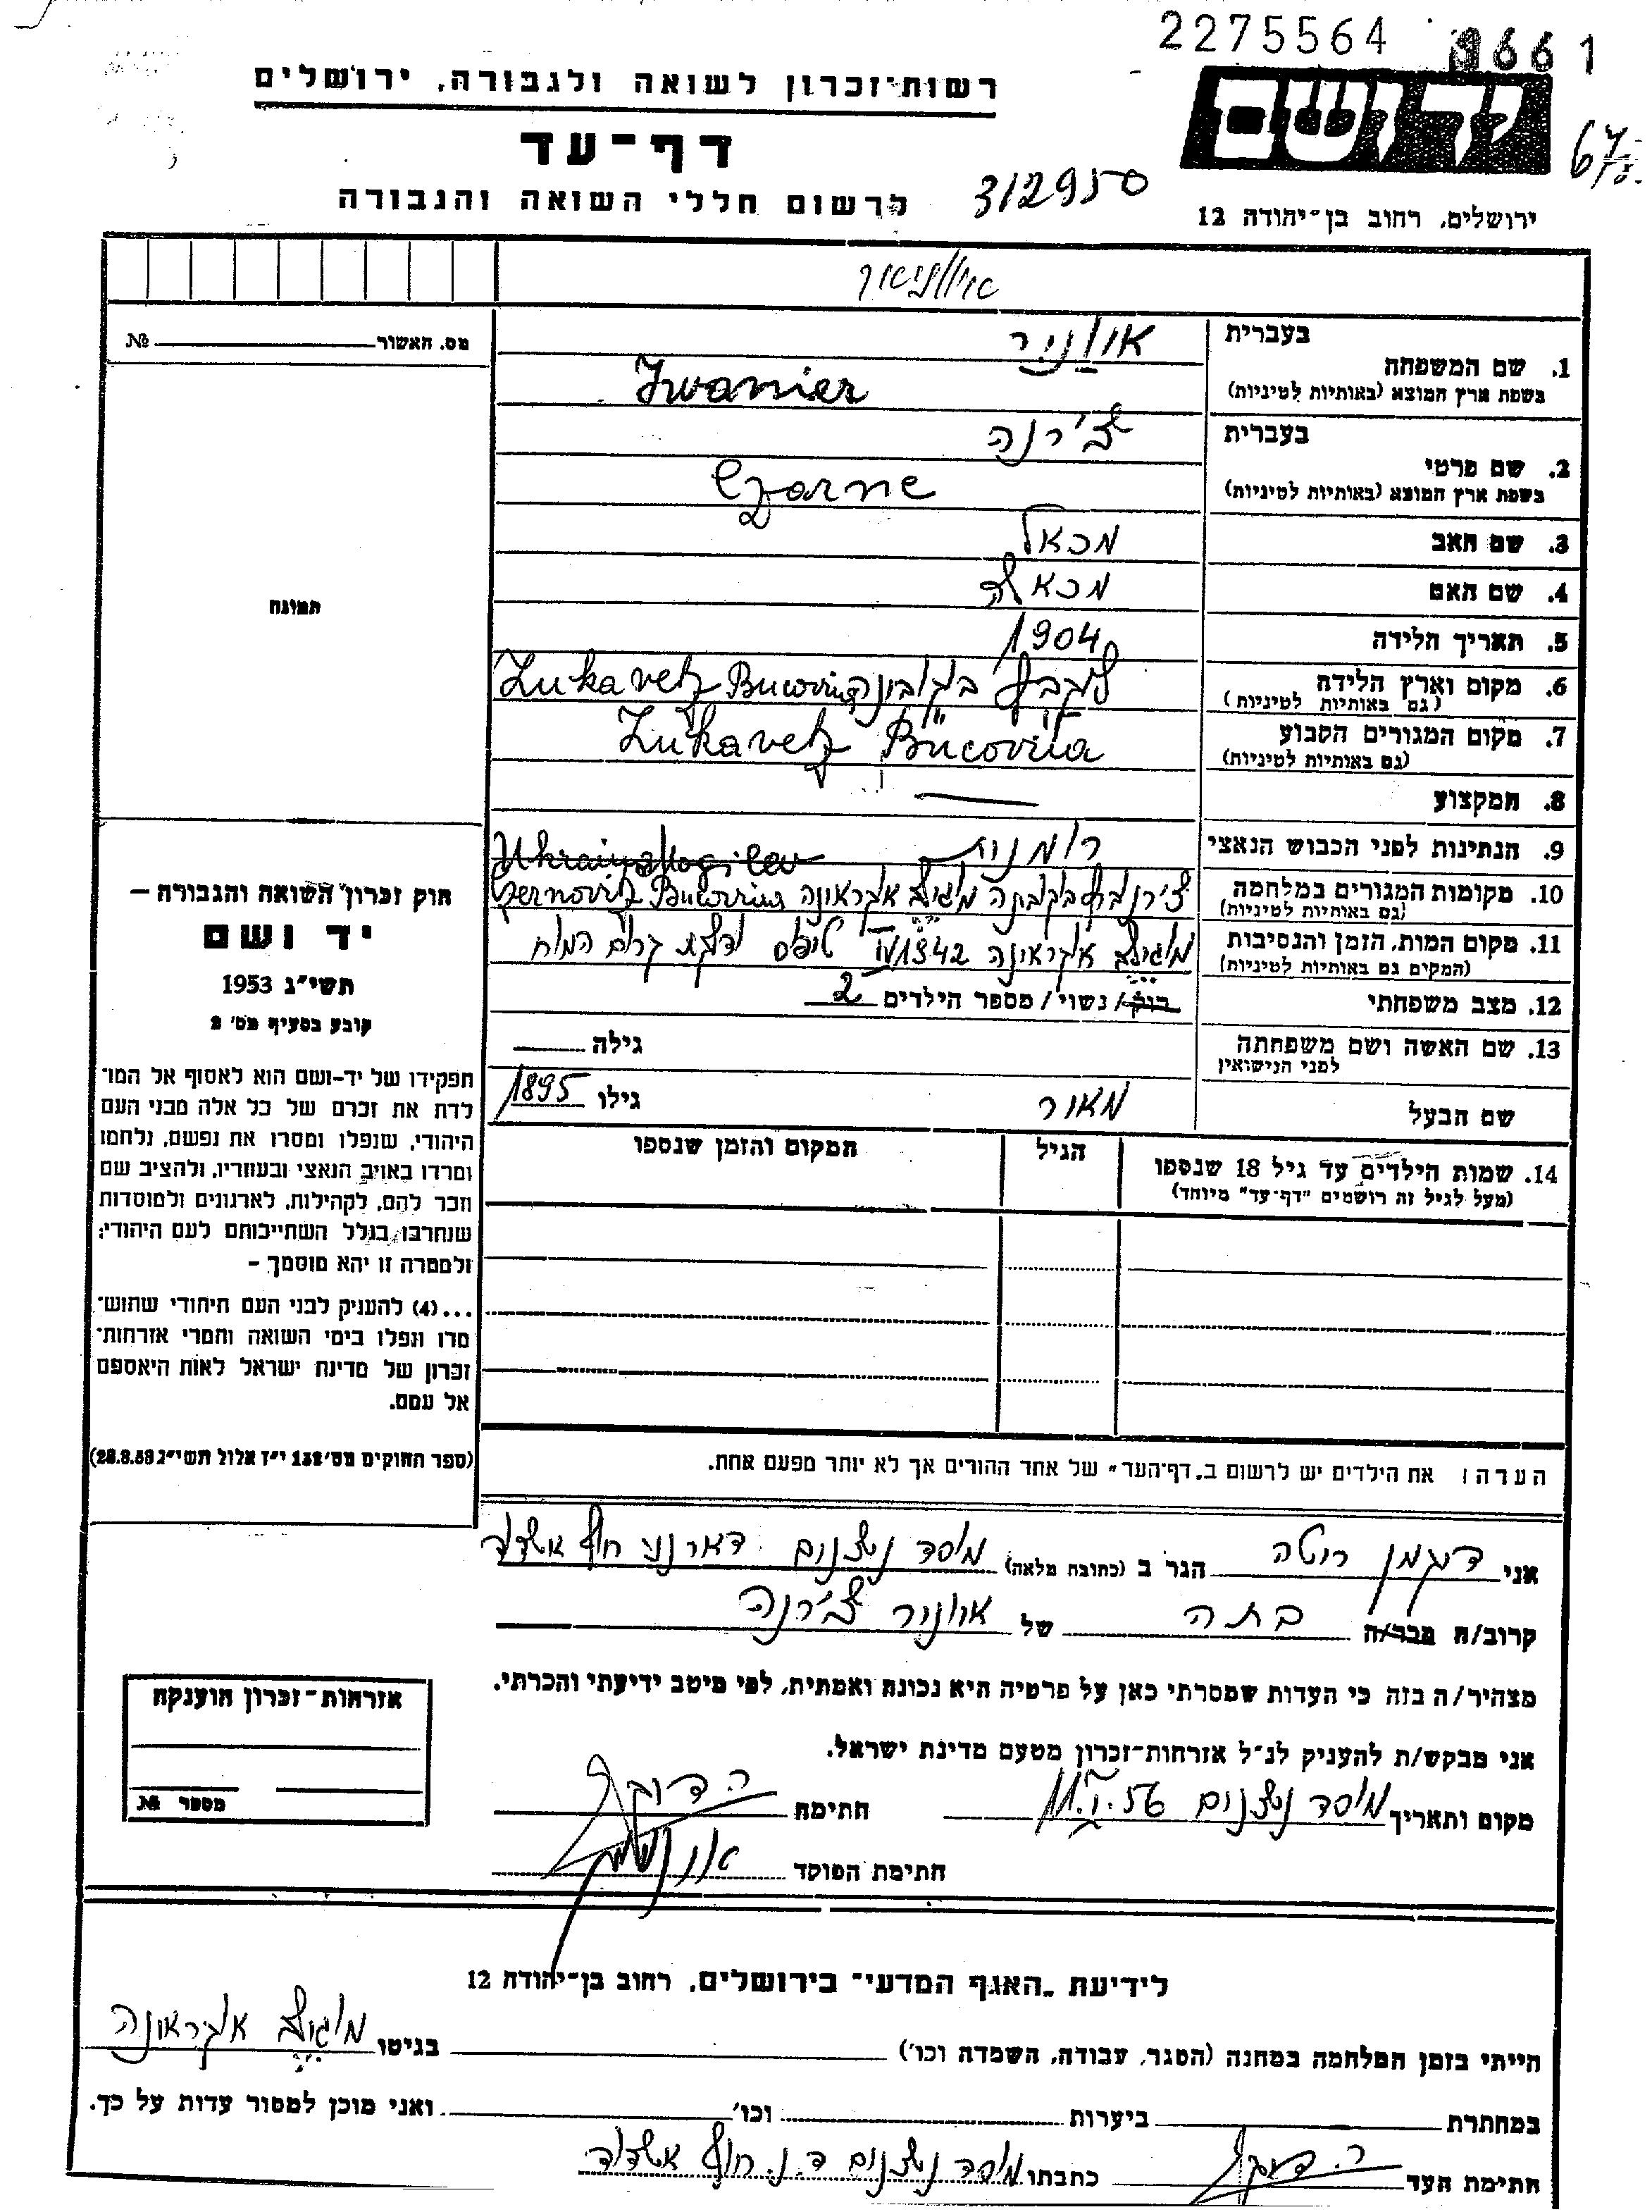 2275564 1661
רשות־זכרון לשואה ולגבורה, ירושלים
יד ושם
דף־עד
לרשום חללי השואה והגבורה
312950
ירושלים, רחוב בן־יהודה 12
בעברית
אווניר
1. שם המשפחה
בשפת ארץ המוצא (באותיות לטיניות)
Iwanier
בעברית
צ'רנה
2. שם פרטי
בשפת ארץ המוצא (באותיות לטיניות)
Czarne
3. שם האב
מכאל
4. שם האם
5. תאריך הלידה
1904
6. מקום וארץ הלידה
(גם באותיות לטיניות)
בוקובינה Lukavetz Bucovina
7. מקום המגורים הקבוע
(גם באותיות לטיניות)
Lukavetz Bucovina
8. המקצוע
—
9. הנתינות לפני הכבוש הנאצי
רומנית
10. מקומות המגורים במלחמה
(גם באותיות לטיניות)
מוגילב אוקראינה Czernovitz Bucovina
Ukraiya Mogilev
11. מקום המות, הזמן והנסיבות
(המקום גם באותיות לטיניות)
מוגילב אוקראינה IV 1942 טיפוס ודלקת קרום המוח
12. מצב משפחתי
רוק/ נשוי/ מספר הילדים 2
13. שם האשה ושם משפחתה
לפני הנישואין
גילה
שם הבעל
מאור
גילו 1895
14. שמות הילדים עד גיל 18 שנספו
(מעל לגיל זה רושמים "דף־עד" מיוחד)
הגיל
המקום והזמן שנספו
הערה: את הילדים יש לרשום ב„דף־העד" של אחד ההורים אך לא יותר מפעם אחת.
מס. האשור № 
תמונה
חוק זכרון השואה והגבורה —
יד ושם
תשי"ג 1953
קובע בסעיף מס' 2
תפקידו של יד-ושם הוא לאסוף אל המו־
לדת את זכרם של כל אלה מבני העם
היהודי, שנפלו ומסרו את נפשם, נלחמו
ומרדו באויב הנאצי ובעוזריו, ולהציב שם
וזכר להם, לקהילות, לארגונים ולמוסדות
שנחרבו בגלל השתייכותם לעם היהודי;
ולמטרה זו יהא מוסמך —
...(4) להעניק לבני העם היהודי שהוש־
מדו ונפלו בימי השואה והמרי אזרחות־
זכרון של מדינת ישראל לאות היאספם
אל עמם.
(ספר החוקים מס' 132 י"ז אלול תשי"ג 28.8.53)
אני רוטה הגר ב (כתובת מלאה) מוסד ניצנים דאר נע חוף אשדוד
קרוב/ה מכר/ה בתה של אווניר צ'רנה
מצהיר/ה בזה כי העדות שמסרתי כאן על פרטיה היא נכונה ואמתית, לפי מיטב ידיעתי והכרתי.
אני מבקש/ת להעניק לנ"ל אזרחות־זכרון מטעם מדינת ישראל.
מקום ותאריך מוסד ניצנים 11.I.56 חתימה
חתימת הפוקד
אזרחות־זכרון הוענקה
מספר №
לידיעת „האגף המדעי" בירושלים, רחוב בן־יהודה 12
הייתי בזמן המלחמה במחנה (הסגר, עבודה, השמדה וכו') בגיטו מוגילב אוקראינה
במחתרת ביערות וכו' ואני מוכן למסור עדות על כך.
חתימת העד כתבתו מוסד ניצנים ד.נ. חוף אשדוד